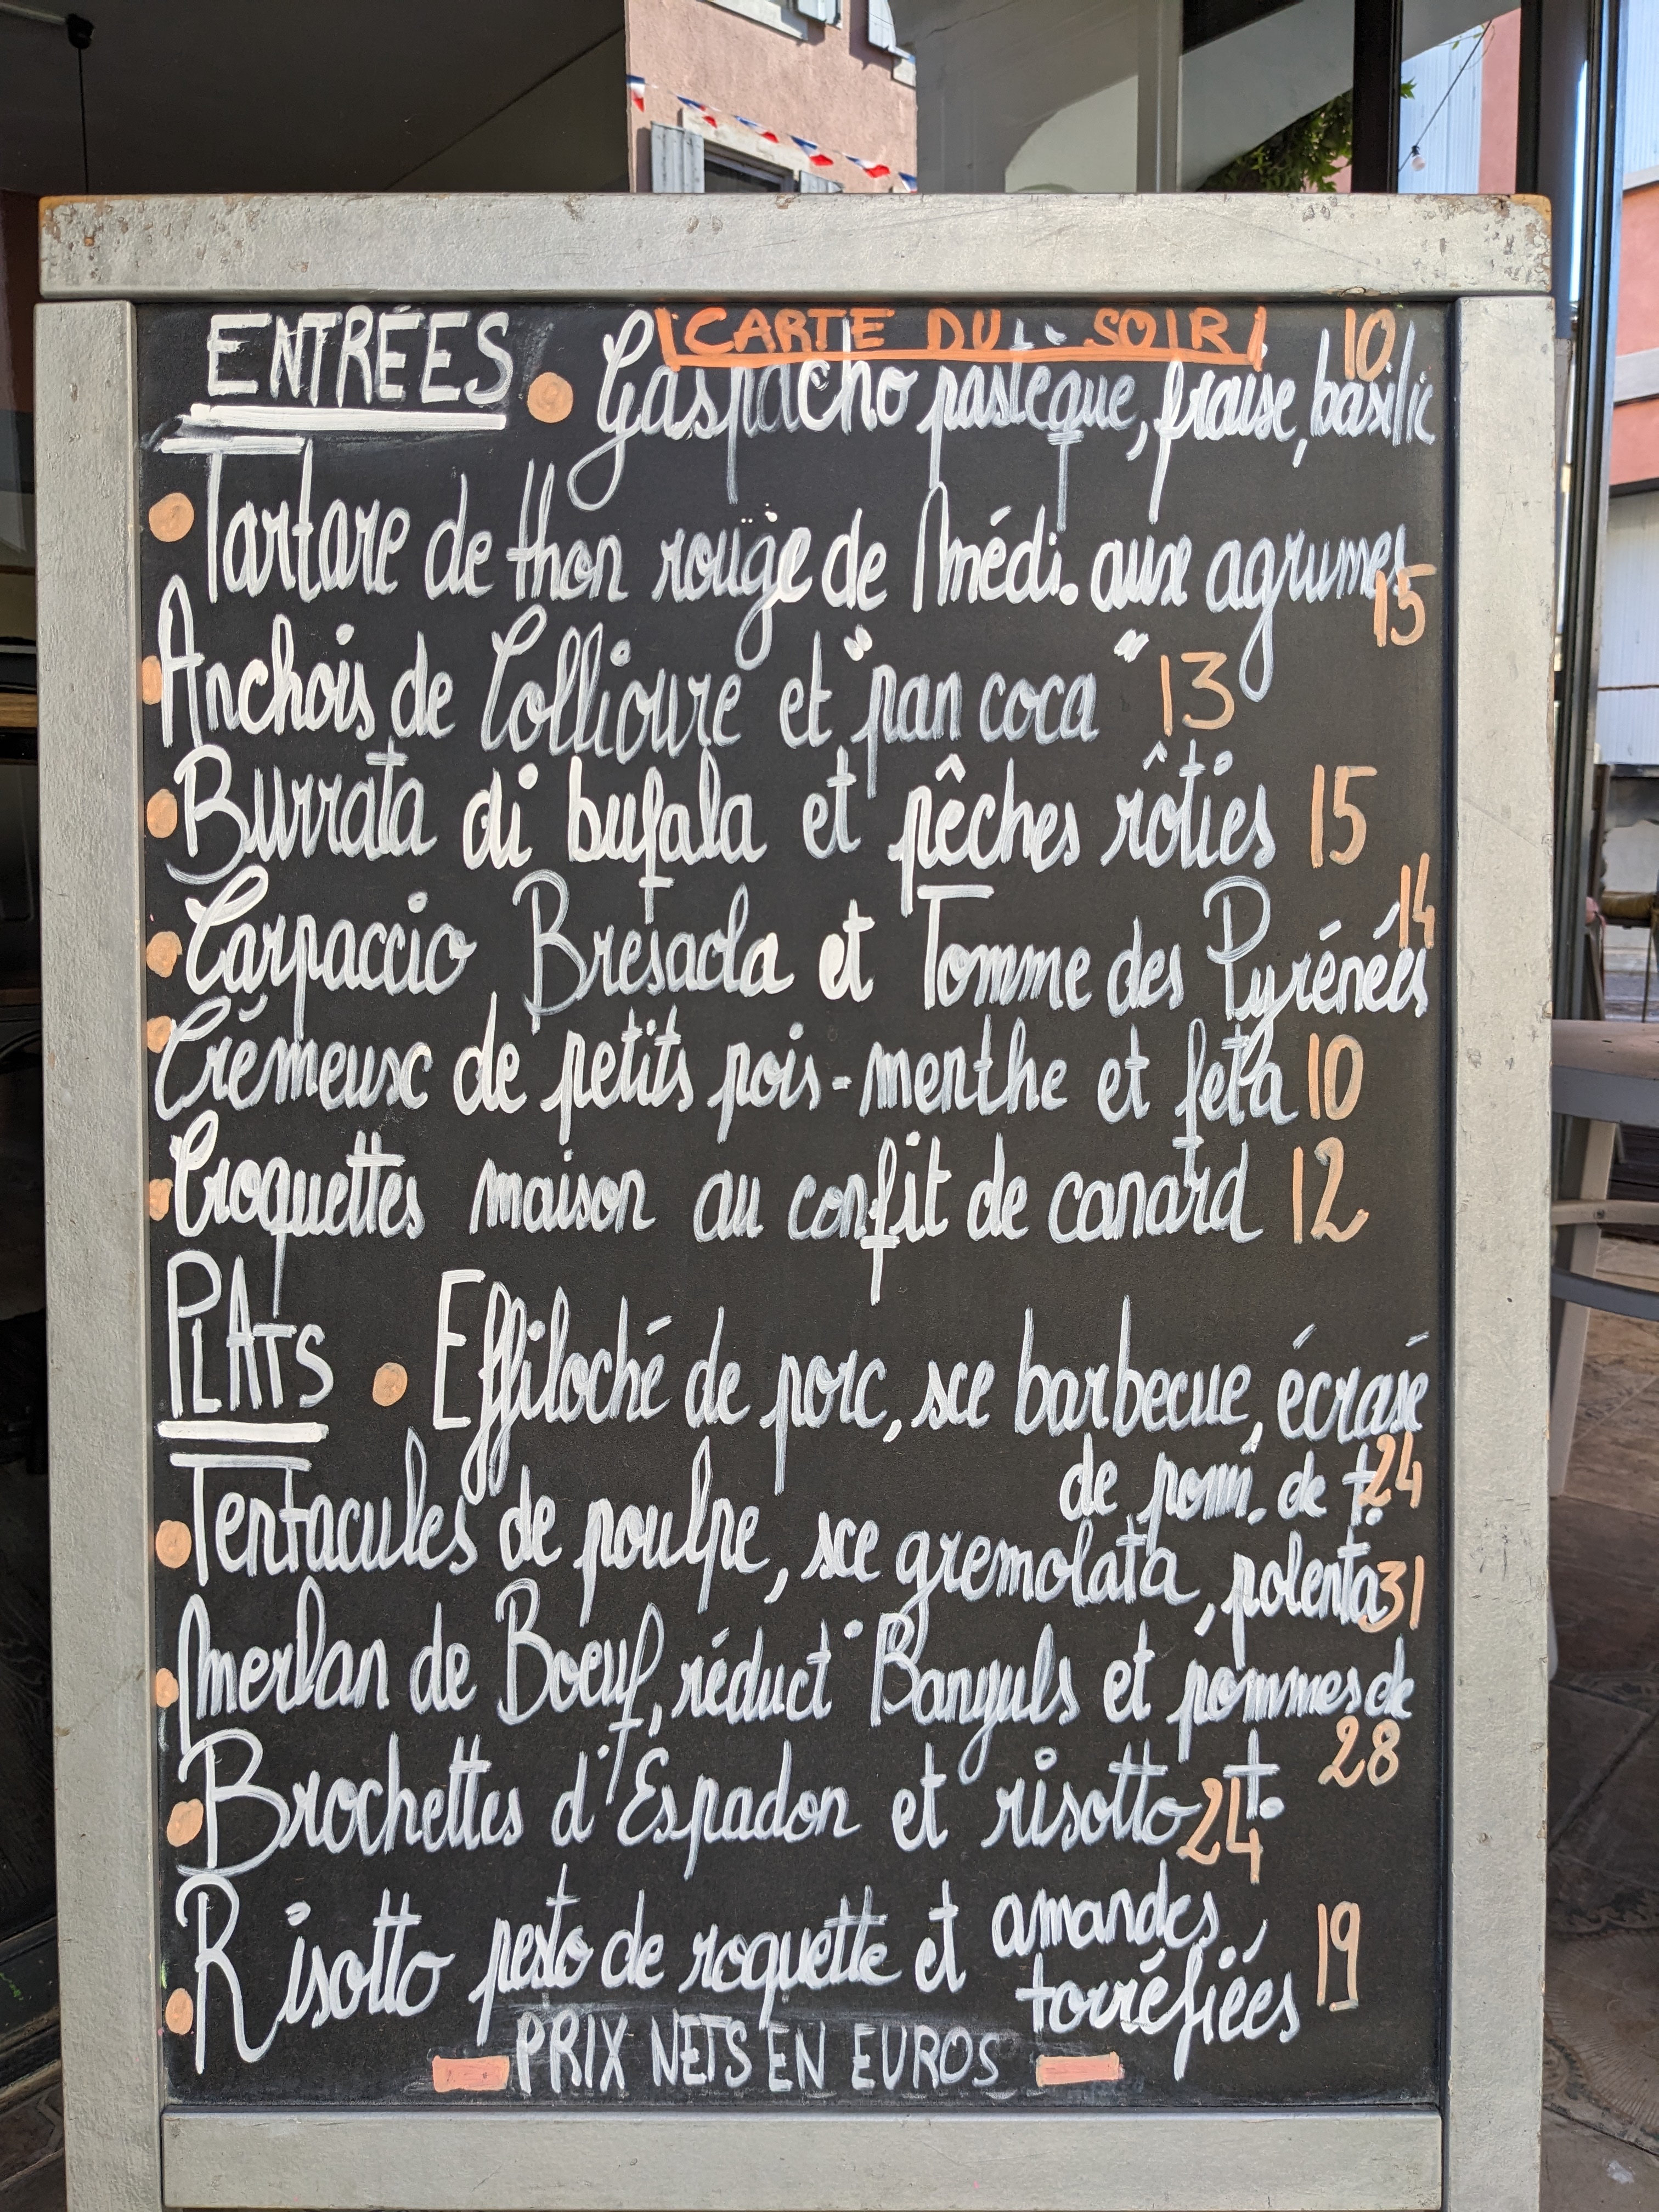 CARTE DU SOIR
ENTRÉES Gaspacho pastèque, fraise, basilic 10
Tartare de thon rouge de Médi. aux agrumes 15
Anchois de Collioure et "pan coca" 13
Burrata di bufala et pêches rôties 15
Carpaccio Bresaola et Tomme des Pyrénées 14
Crémeux de petits pois-menthe et feta 10
Croquettes maison au confit de canard 12
PLATS Effiloché de porc, sce barbecue, écrasé
de pom. de t. 24
Tentacules de poulpe, sce gremolata, polenta 31
Merlan de Boeuf, réduct° Banyuls et pommes de
t. 28
Brochettes d'Espadon et risotto 24
Risotto pesto de roquette et amandes
torréfiées 19
PRIX NETS EN EUROS